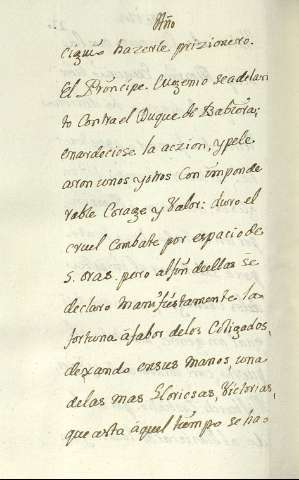 Año
ciguió hazerle prizionero.
El Príncipe Eugenio se adelan
to contra el Duque de Babiera;
enardeciose la aczion, y pele
aron unos y otros con imponde
rable Corage y Valor: duro el
cruel combate por espacio de
5. oras. pero al fin de ellas se
declaro manifiestamente la
fortuna á fabor de los Coligados,
dexando en sus manos, una
de las mas Gloriosas, Victorias,
que asta aquel tiempo se ha-